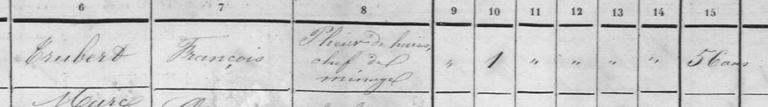 6 7 8 9 10 11 12 13 14 15
Trubert François Plieur de haies, chef de ménage " 1 " " " " 56 ans
Marc